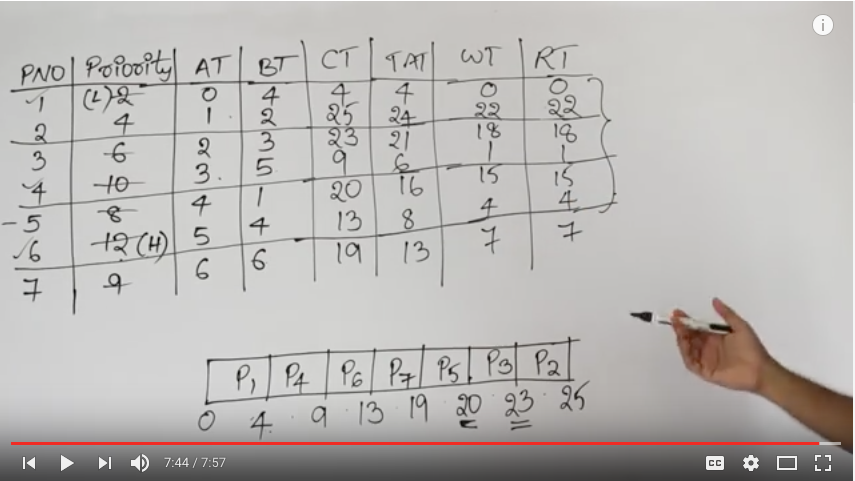 PNO Priority AT BT CT TAT WT RT
1 (L) 2 0 4 4 4 0 0
2 4 1 2 25 24 22 22
3 6 2 3 23 21 18 18
4 10 3 5 9 6 1 1
5 8 4 1 20 16 15 15
6 12 (H) 5 4 13 8 4 4
7 9 6 6 19 13 7 7
P1 P4 P6 P7 P5 P3 P2
0 4 9 13 19 20 23 25
7:44 / 7:57
CC